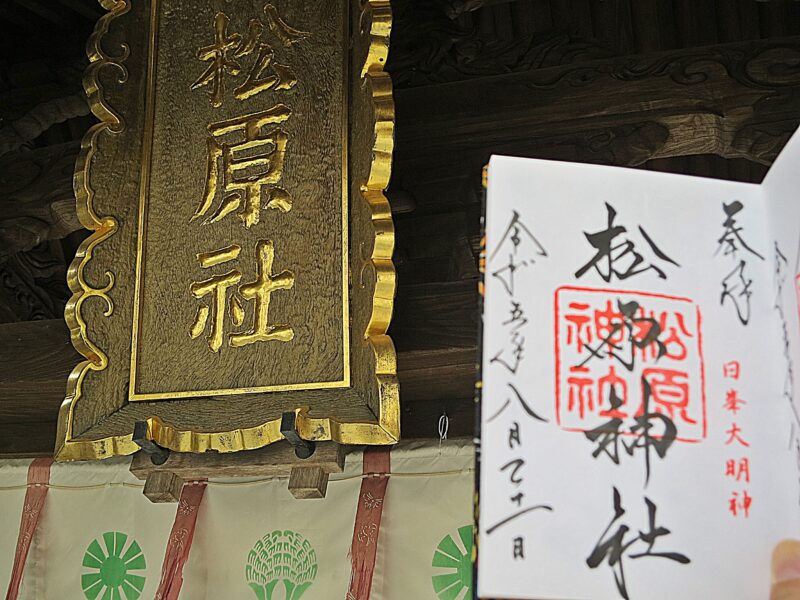 松原社
奉拝
日峯大明神
松原神社
松原
神社
令和五年八月二十一日